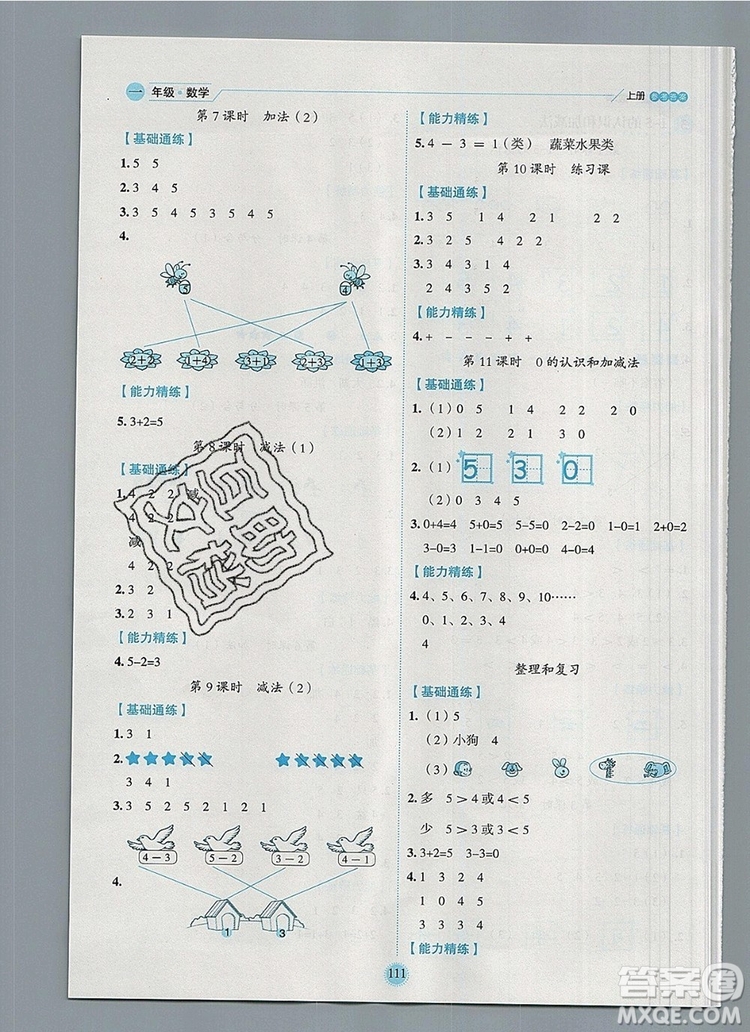 一 年级·数学
上册 参考答案
第7课时 加法(2)
【基础通练】
1. 5 5
2. 3 5 4
3. 5 3 5 4 5 3 5 4 5
4.
5 4
2+2 1+4 3+1 3+2 1+3
【能力精练】
5. 3+2=5
第8课时 减法(1)
【基础通练】
1. 4 2 2 减
4 2 2
减
4 2 2
2. 3 2
3. 2 3 1
【能力精练】
4. 5-2=3
第9课时 减法(2)
【基础通练】
1. 3 1
2.
3 4 1
3. 3 5 2 5 2 1 2 1
4-3 5-2 3-2 4-1
4.
1 3
【能力精练】
5. 4-3=1(类) 蔬菜水果类
第10课时 练习课
【基础通练】
1. 3 5 1 4 2 1 2 2
2. 3 2 5 4 1 4
3. 3 4 4 3 1 4
2 4 3 5 2
【能力精练】
4. + - - + - +
第11课时 0的认识和加减法
【基础通练】
1. (1) 0 5 1 4 2 2 2 0
(2) 2 0 1 2 1 2 0
2. (1) 5 3 0
(2) 0 3 4 5
3. 0+4=4 5+0=5 2-2=0 1-0=1 2+0=2
3-0=3 1-1=0 4-0=4 0+0=0
【能力精练】
4. 4、5、6、7、8、9、10……
0、1、2、3、4
4
整理和复习
【基础通练】
1. (1) 5
(2) 小狗 4
(3)
2. 多 5>4或4<5
少 5>4或4<5
3. 3+2=5 3-3=0
4. 1 3 2 4
1 0 4 5
3 3 3 4
【能力精练】
111
答案圈
MXQE.COM